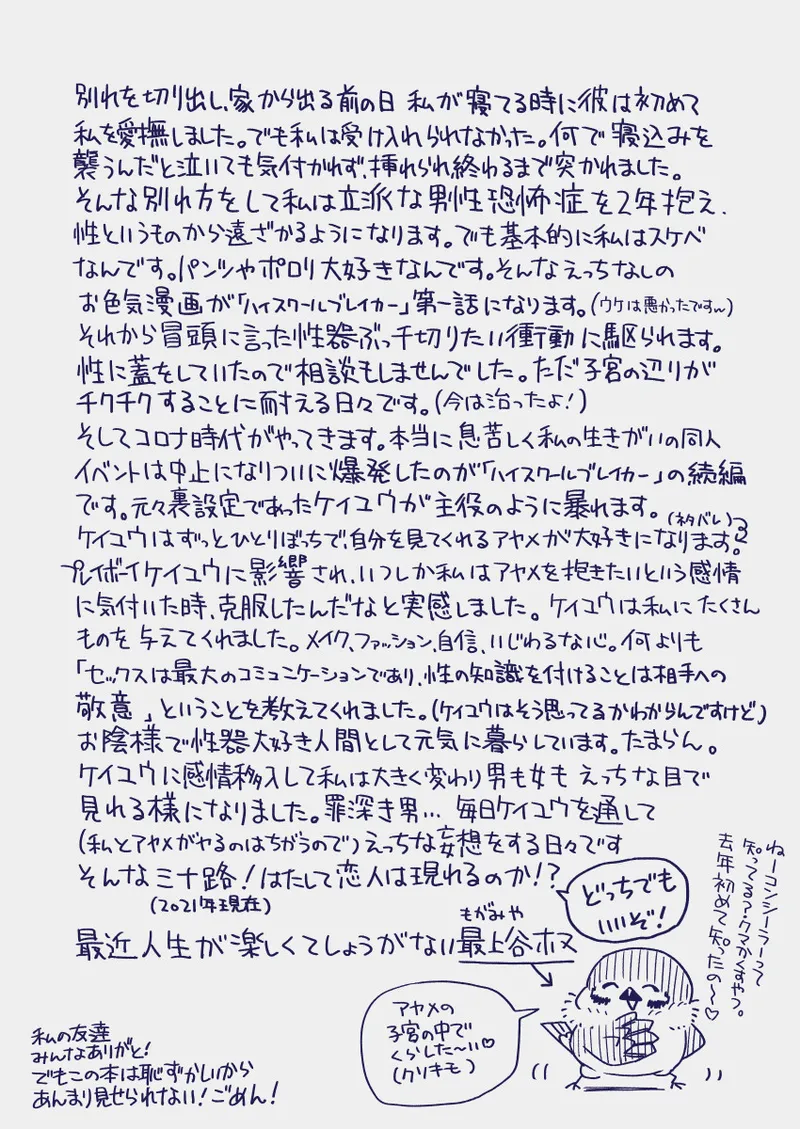 別れを切り出し、家から出る前の日 私が寝てる時に彼は初めて
私を愛撫しました。でも私は受け入れられなかった。何で寝込みを
襲うんだと泣いても気付かれず、挿れられ終わるまで突かれました。
そんな別れ方をして私は立派な男性恐怖症を2年抱え、
性というものから遠ざかるようになります。でも基本的に私はスケベ
なんです。パンツやポロリ大好きなんです。そんなえっちなしの
お色気漫画が「ハイスクールブレイカー」第一話になります。(ウケは悪かったですm)
それから冒頭に言った性器ぶっ千切りたい衝動に駆られます。
性に蓋をしていたので相談もしませんでした。ただ子宮の辺りが
チクチクすることに耐える日々です。(今は治ったよ!)
そしてコロナ時代がやってきます。本当に息苦しく私の生きがいの同人
イベントは中止になりついに爆発したのが「ハイスクールブレイカー」の続編
です。元々裏設定であったケイユウが主役のように暴れます。
(ネタバレ)
ケイユウはずっとひとりぼっちで、自分を見てくれるアヤメが大好きになります。
プレイボーイケイユウに影響され、いつしか私はアヤメを抱きたいという感情
に気付いた時、克服したんだなと実感しました。ケイユウは私にたくさん
ものを与えてくれました。メイク、ファッション、自信、いじわるな心。何よりも
「セックスは最大のコミュニケーションであり、性の知識を付けることは相手への
敬意」ということを教えてくれました。(ケイユウはそう思ってるかわからんですけど)
お陰様で性器大好き人間として元気に暮らしています。たまらん。
ケイユウに感情移入して私は大きく変わり男も女もえっちな目で
見れる様になりました。罪深き男… 毎日ケイユウを通して
(私とアヤメがヤるのはちがうので)えっちな妄想をする日々です
そんな三十路!はたして恋人は現れるのか!?
(2021年現在)
どっちでも
いいぞ!
最近人生が楽しくてしょうがない最上谷ホヌ
もがみや
ねーコンシーラーって
知ってる?クマかくすやつ。
去年初めて知ったの〜♡
アヤメの
子宮の中で
くらした〜い♡
(クソキモ)
私の友達
みんなありがと!
でもこの本は恥ずかしいから
あんまり見せられない!ごめん!